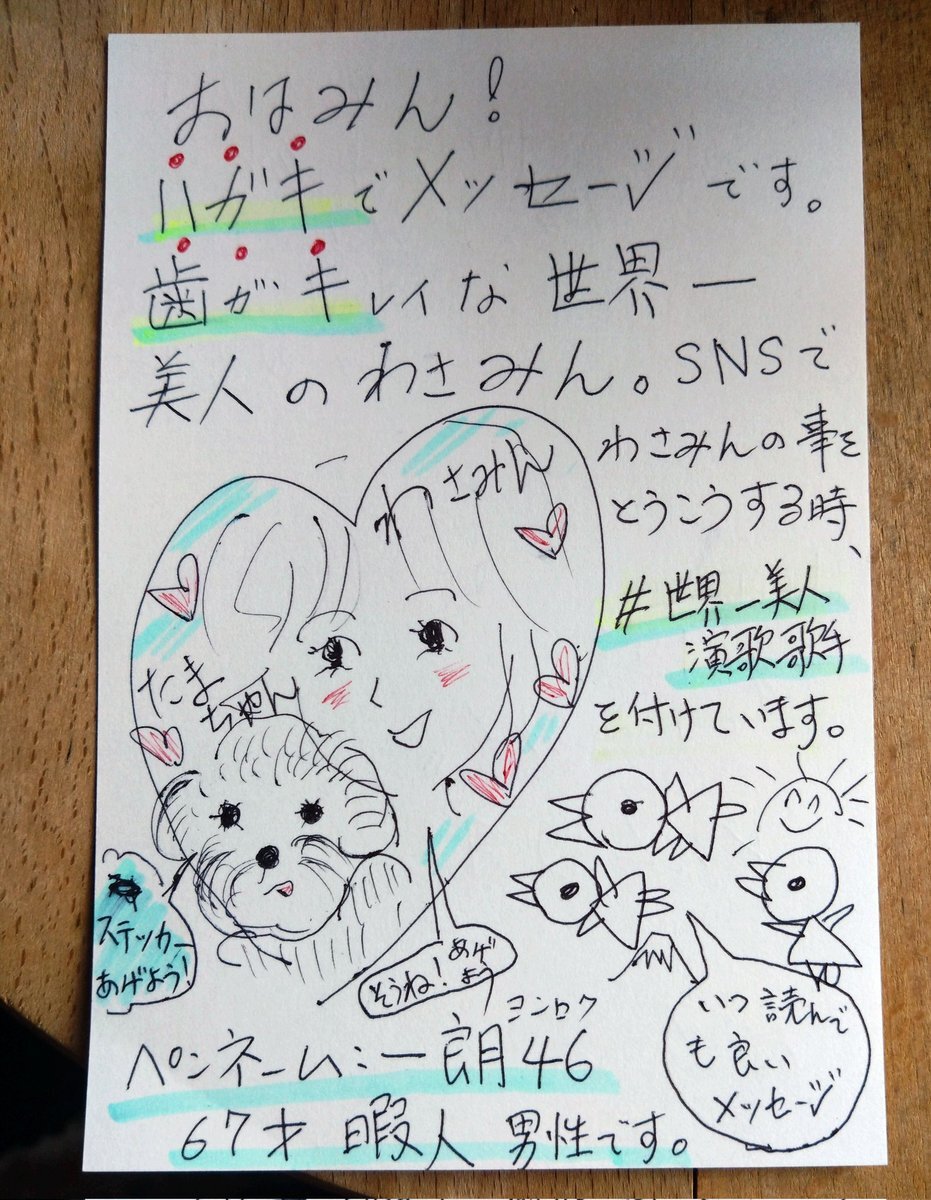 おはみん!
ハガキでメッセージです。
歯がキレイな世界一
美人のわさみん。SNSで
わさみんの事を
とうこうする時、
#世界一美人
演歌歌手
を付けています。
わさみん
たまちゃん
ステッカー
あげよう!
そうね!あげよう
いつ読んで
も良い
メッセージ
ヨンロク
ペンネームミー朗46
67才 暇人 男性です。